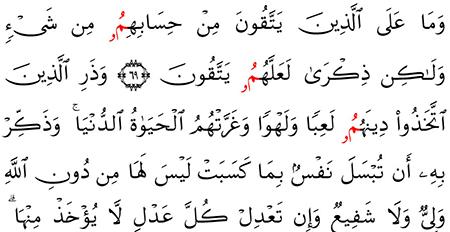 وَمَا عَلَى ٱلَّذِينَ يَتَّقُونَ مِنْ حِسَابِهِمُۥ مِن شَىْءٍ
وَلَٰكِن ذِكْرَىٰ لَعَلَّهُمُۥ يَتَّقُونَ ٦٩ وَذَرِ ٱلَّذِينَ
ٱتَّخَذُوا۟ دِينَهُمُۥ لَعِبًا وَلَهْوًا وَغَرَّتْهُمُ ٱلْحَيَوٰةُ ٱلدُّنْيَا ۚ وَذَكِّرْ
بِهِۦٓ أَن تُبْسَلَ نَفْسٌۢ بِمَا كَسَبَتْ لَيْسَ لَهَا مِن دُونِ ٱللَّهِ
وَلِىٌّ وَلَا شَفِيعٌ وَإِن تَعْدِلْ كُلَّ عَدْلٍ لَّا يُؤْخَذْ مِنْهَآ ۗ